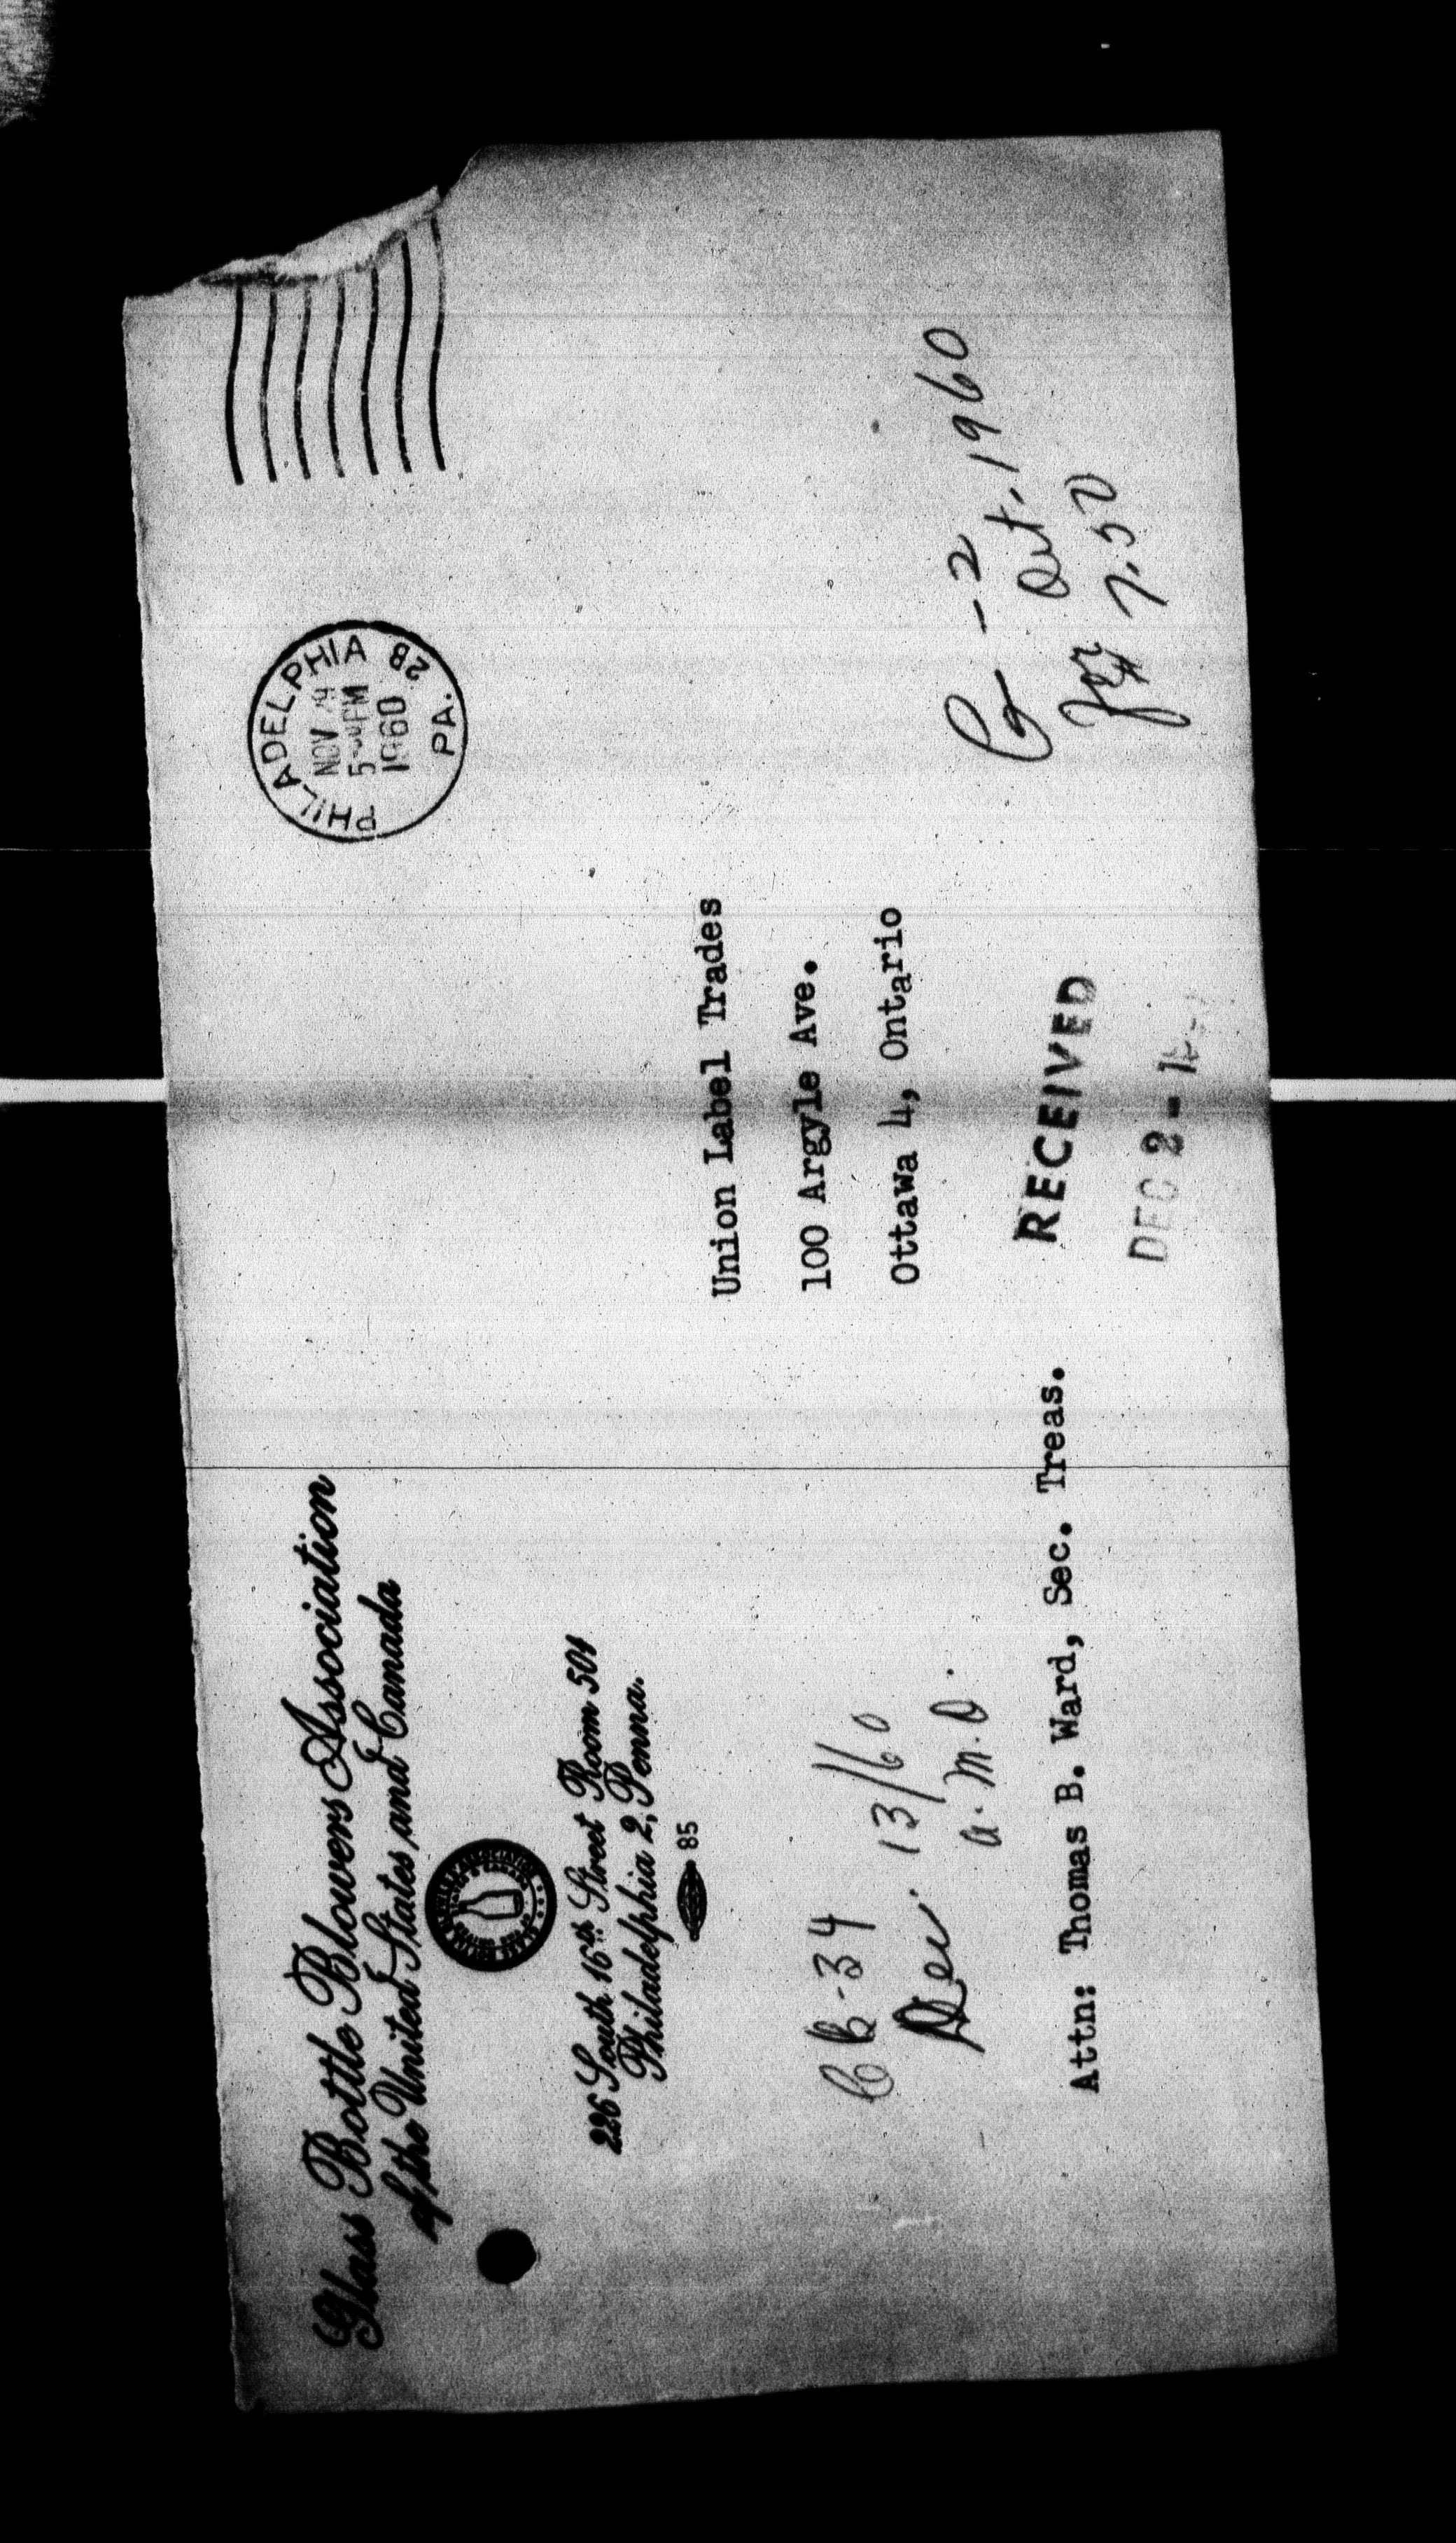 Glass Bottle Blowers Association
of the United States and Canada
226 South 16th Street Room 504
Philadelphia 2, Penna.
85
PHILADELPHIA 28
PA.
NOV 29
5 PM
1960
Union Label Trades
100 Argyle Ave.
Ottawa 4, Ontario
CB-34
Dec. 13/60
a.m.D.
-2
Oct. 1960
7.50
RECEIVED
DEC 2 -
Attn: Thomas B. Ward, Sec. Treas.